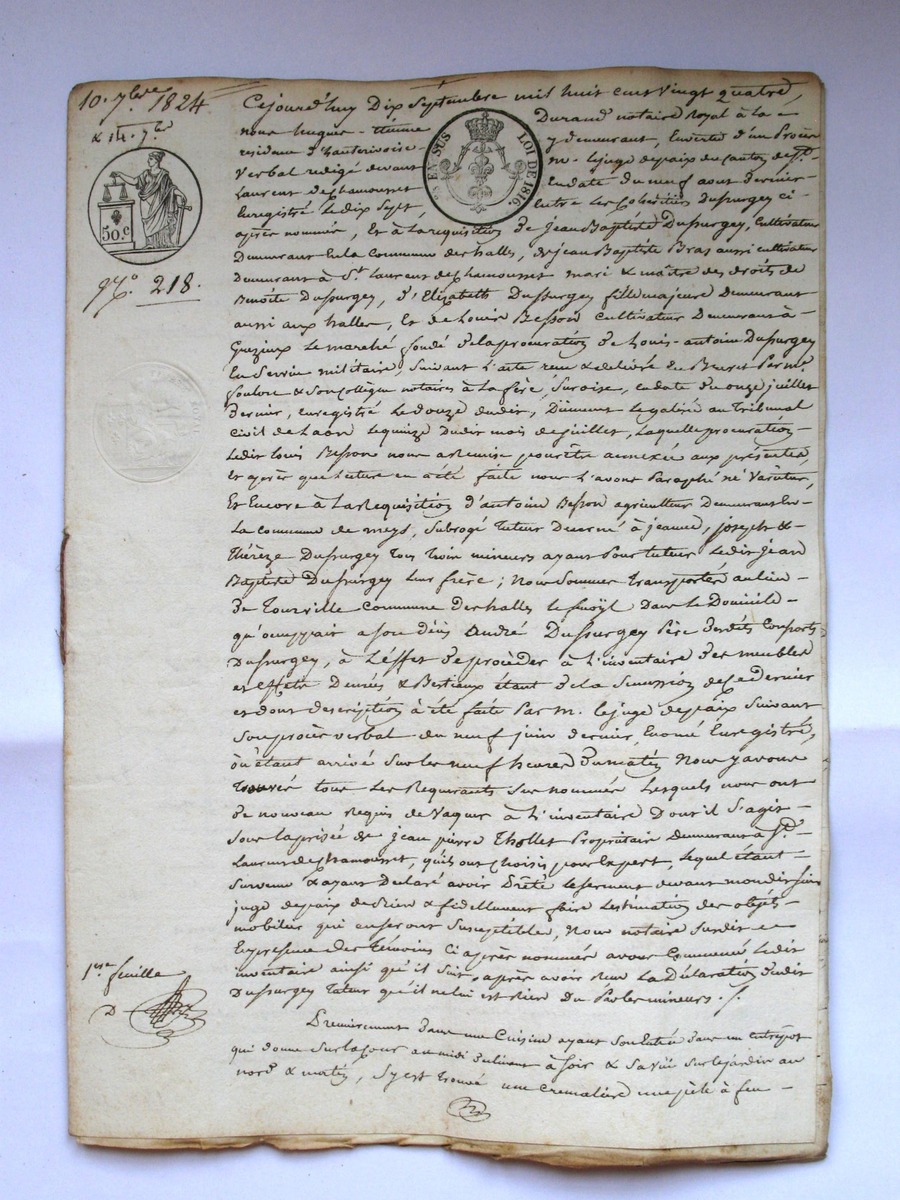 10. 7bre 1824
& 14. 7bre
50.c
No. 218.
EN SUS LOI DE 1816.
Cejourd'huy Dix Septembre mil huit cent vingt quatre,
nous hugues-étienne Durand notaire Royal à la
residence d'hauterivoire y demeurant, En vertu d'un Procès
Verbal redigé devant m. le juge de paix du canton de St
Laurent de Chamousset En date du neuf aout dernier
Enregistré le dix sept, Entre les Cohéritiers Dussurgey ci-
après nommés, Et à la requisition de jean Baptiste Dussurgey, Cultivateur
Demeurant En la Commune des halles, de jean Baptiste Bras aussi cultivateur
demeurant à St Laurent de Chamousset mari & maître des droits de
Benoîte Dussurgey, d'Elizabeth Dussurgey fille majeure Demeurant
aussi aux halles, Et de Louis Besson Cultivateur Demeurant à
Grezieux Le marché fondé de la procuration de Louis-antoine Dussurgey
En Service militaire, Suivant l'acte reçu & delivré En Brevet Par me
foulon & Son Collègue notaires à La fère, Sur oise, en date du onze juillet
dernier, enregistré Le douze dudit, Düement Legalisé au Tribunal
Civil de Laon Le quinze dudit mois de juillet, Laquelle procuration
Ledit Louis Besson nous a remise pour être annexée aux présentes,
Et après que lecture en a été faite nous l'avons Paraphé né Varietur,
Et Encore à La Requisition d'antoine Besson agriculteur Demeurant En
La commune de meys, Subrogé Tuteur Décerné à jeanne, joseph &
thérèze Dussurgey Tous Trois mineurs ayant Pour tuteur Ledit jean
Baptiste Dussurgey leur frère; Nous Sommes Transportés au lieu
de Tourville Commune des halles le fenoÿl Dans Le Domicile
qu'occuppait a son décès André Dussurgey Père desdits Consorts
Dussurgey, à L'effet de procèder à l'inventaire des meubles
et effets Denrées & Bestiaux étant de La Succession de ce dernier
et dont description à été faite Par m. le juge de paix Suivant
Son procès verbal du neuf juin dernier, Enregistré,
où étant arrivé Sur les neuf heures du matin Nous y avons
trouvé tous Les Requérants Sus nommés Lesquels nous ont
de nouveau Requis de Vaquer à l'inventaire Dont il S'agit
Sous la prisée de jean pierre Thollet Propriétaire Demeurant à St
Laurent de Chamousset, qu'ils ont choisi pour Expert, Lequel étant
Survenu & ayant Déclaré avoir Prêté le Serment devant mondit Sieur
juge de paix de Bien & fidellement faire L'estimation des objets
mobilier qui en Seront Susceptibles, Nous notaire Susdit En
Présence des Témoins Ci après nommés avons Commencé Ledit
inventaire ainsi qu'il Suit, après avoir Reçu La Déclaration dudit
Dussurgey Tuteur qu'il ne lui est Rien Du Par les mineurs.
1ere feuille
D
Premierement dans une Cuisine ayant Son Entrée dans un entrepot
qui donne Sur la Cour au midi à Soir & Sa Vüe Sur le jardin au
nord & matin, S'y est trouvé une Cremalière une pèle à feu